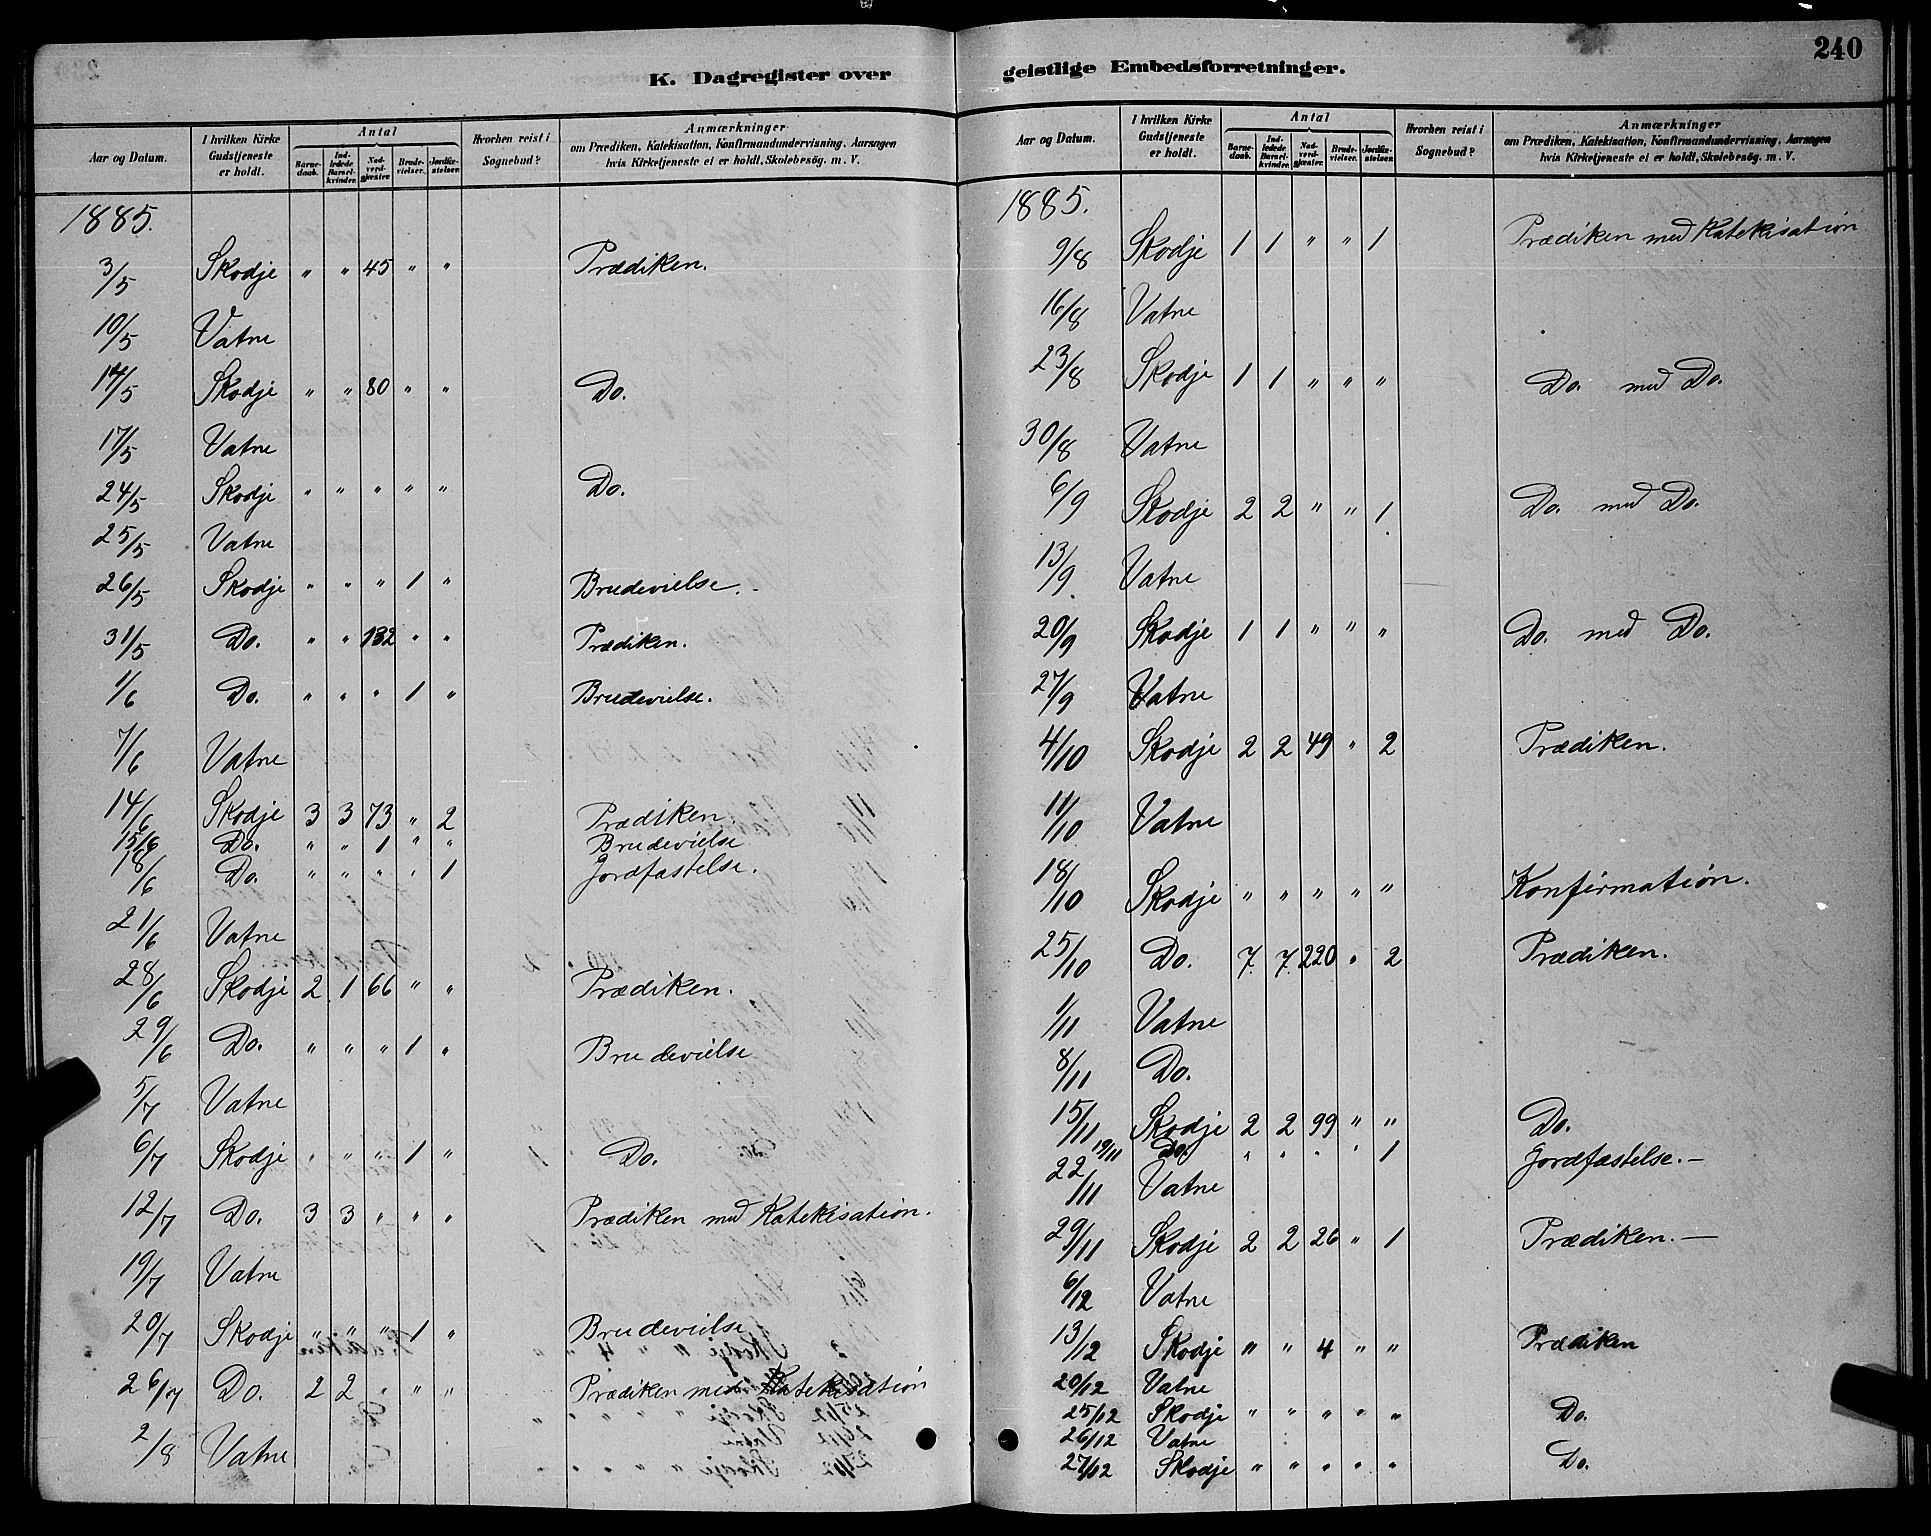 K. Dagregister over
Aar og Datum.
I hvilken Kirke Gudstjeneste er holdt.
Antal
Barne-daab.
Ind-ledede Barsel-kvinder.
Nad-verd-gjæster.
Brude-vielser.
Jordfæ-stelser.
Hvorhen reist i Sognebud?
Anmærkninger
om Prædiken, Katekisation, Konfirmandundervisning, Aarsagen
hvis Kirketjeneste ei er holdt, Skolebesög. m. V.
1885.
3/5 Skodje " " 45 " " Prædiken.
10/5 Vatne
14/5 Skodje " " 80 " " Do.
17/5 Vatne
24/5 Skodje " " " " " Do.
25/5 Vatne
26/5 Skodje " " " 1 " Brudevielse.
31/5 Do. " " 132 " " Prædiken.
1/6 Do. " " " 1 " Brudevielse.
7/6 Vatne
14/6 Skodje 3 3 73 " 2 Prædiken.
15/6 Do. " " 1 " " Brudevielse
18/6 Do. " " " " 1 Jordfæstelse.
21/6 Vatne
28/6 Skodje 2 1 66 " " Prædiken.
29/6 Do. " " " 1 " Brudevielse
5/7 Vatne
6/7 Skodje " " " 1 " Do.
12/7 Do. 3 3 " " " Prædiken med Katekisation.
19/7 Vatne
20/7 Skodje " " " 1 " Brudevielse
26/7 Do. 2 2 " " " Prædiken med Katekisation
2/8 Vatne
240
geistlige Embedsforretninger.
Aar og Datum.
I hvilken Kirke Gudstjeneste er holdt.
Antal
Barne-daab.
Ind-ledede Barsel-kvinder.
Nad-verd-gjæster.
Brude-vielser.
Jordfæ-stelser.
Hvorhen reist i Sognebud?
Anmærkninger
om Prædiken, Katekisation, Konfirmandundervisning, Aarsagen
hvis Kirketjeneste ei er holdt, Skolebesög. m. V.
1885.
9/8 Skodje 1 1 " " 1 Prædiken med Katekisation
16/8 Vatne
23/8 Skodje 1 1 " " " Do. med Do.
30/8 Vatne
6/9 Skodje 2 2 " " 1 Do. med Do.
13/9 Vatne
20/9 Skodje 1 1 " " " Do. med Do.
27/9 Vatne
4/10 Skodje 2 2 49 " 2 Prædiken.
11/10 Vatne
18/10 Skodje " " " " " Konfirmation.
25/10 Do. 7 7 220 " 2 Prædiken.
1/11 Vatne
8/11 Do.
15/11 Skodje 2 2 99 " " Do.
19/11 Do. " " " " 1 Jordfæstelse.—
22/11 Vatne
29/11 Skodje 2 2 26 " 1 Prædiken.—
6/12 Vatne
13/12 Skodje " " 4 " " Prædiken
20/12 Vatne
25/12 Skodje " " " " " Do.
26/12 Vatne
27/12 Skodje " " " " " Do.